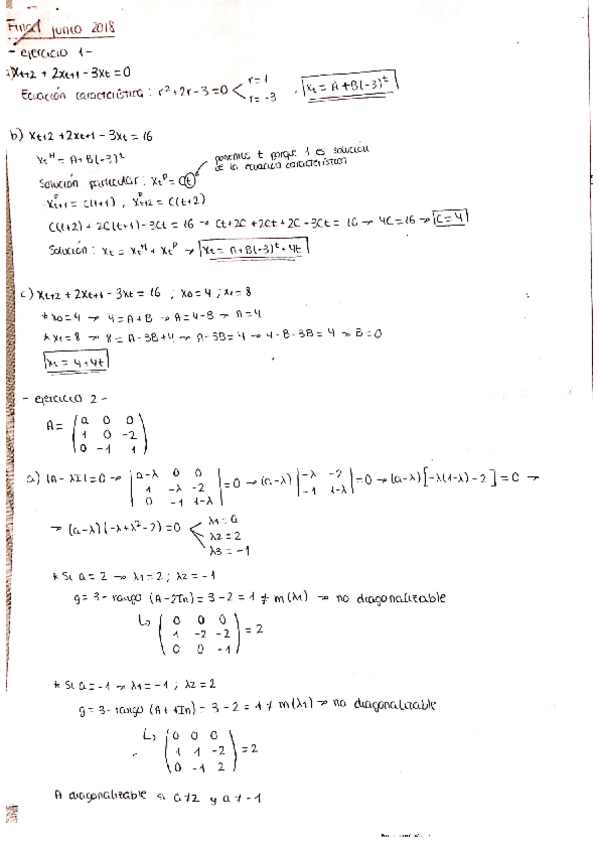 Final junio 2018
- ejercicio 1 -
a) Xt+2 + 2Xt+1 - 3Xt = 0
Ecuación característica: r² + 2r - 3 = 0 < r = 1 r = -3 . Xt = A + B(-3)^t
b) Xt+2 + 2Xt+1 - 3Xt = 16
Xt^H = A + B(-3)^t
ponemos t porque 1 es solución
de la ecuación característica
Solución particular: Xt^P = Ct
X^P t+1 = C(t+1) , X^P t+2 = C(t+2)
C(t+2) + 2C(t+1) - 3Ct = 16 → Ct + 2C + 2Ct + 2C - 3Ct = 16 → 4C = 16 → C = 4
Solución: Xt = Xt^H + Xt^P → Xt = A + B(-3)^t + 4t
c) Xt+2 + 2Xt+1 - 3Xt = 16 ; X0 = 4 ; X1 = 8
* X0 = 4 → 4 = A + B → A = 4 - B → A = 4
* X1 = 8 → 8 = A - 3B + 4 → A - 3B = 4 → 4 - B - 3B = 4 → B = 0
Xt = 4 + 4t
- ejercicio 2 -
A = ( a 0 0
1 0 -2
0 -1 1 )
a) |A - λI| = 0 → | a-λ 0 0
1 -λ -2
0 -1 1-λ | = 0 → (a-λ) | -λ -2
-1 1-λ | = 0 → (a-λ) [-λ(1-λ) - 2] = 0 →
→ (a-λ) (-λ + λ² - 2) = 0 < λ1 = a
λ2 = 2
λ3 = -1
* Si a = 2 → λ1 = 2 ; λ2 = -1
g = 3 - rango (A - 2In) = 3 - 2 = 1 ≠ m(λ1) → no diagonalizable
↳ ( 0 0 0
1 -2 -2
0 0 -1 ) = 2
* Si a = -1 → λ1 = -1 ; λ2 = 2
g = 3 - rango (A + 1In) = 3 - 2 = 1 ≠ m(λ1) → no diagonalizable
↳ ( 0 0 0
1 1 -2
0 -1 2 ) = 2
A diagonalizable si a ≠ 2 y a ≠ -1